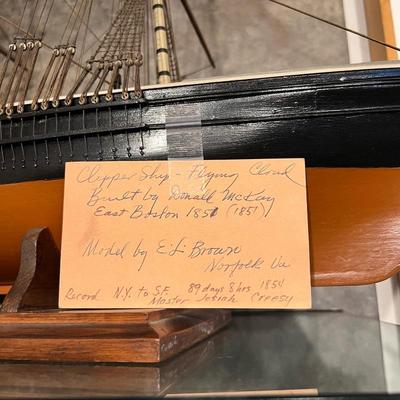 Clipper Ship - Flying Cloud
Built by Donald McKay
East Boston 1851 (1851)
Model by E. L. Brown
Norfolk Va
Record N.Y. to S.F. 89 days 8 hrs 1854
Master Josiah Creesy